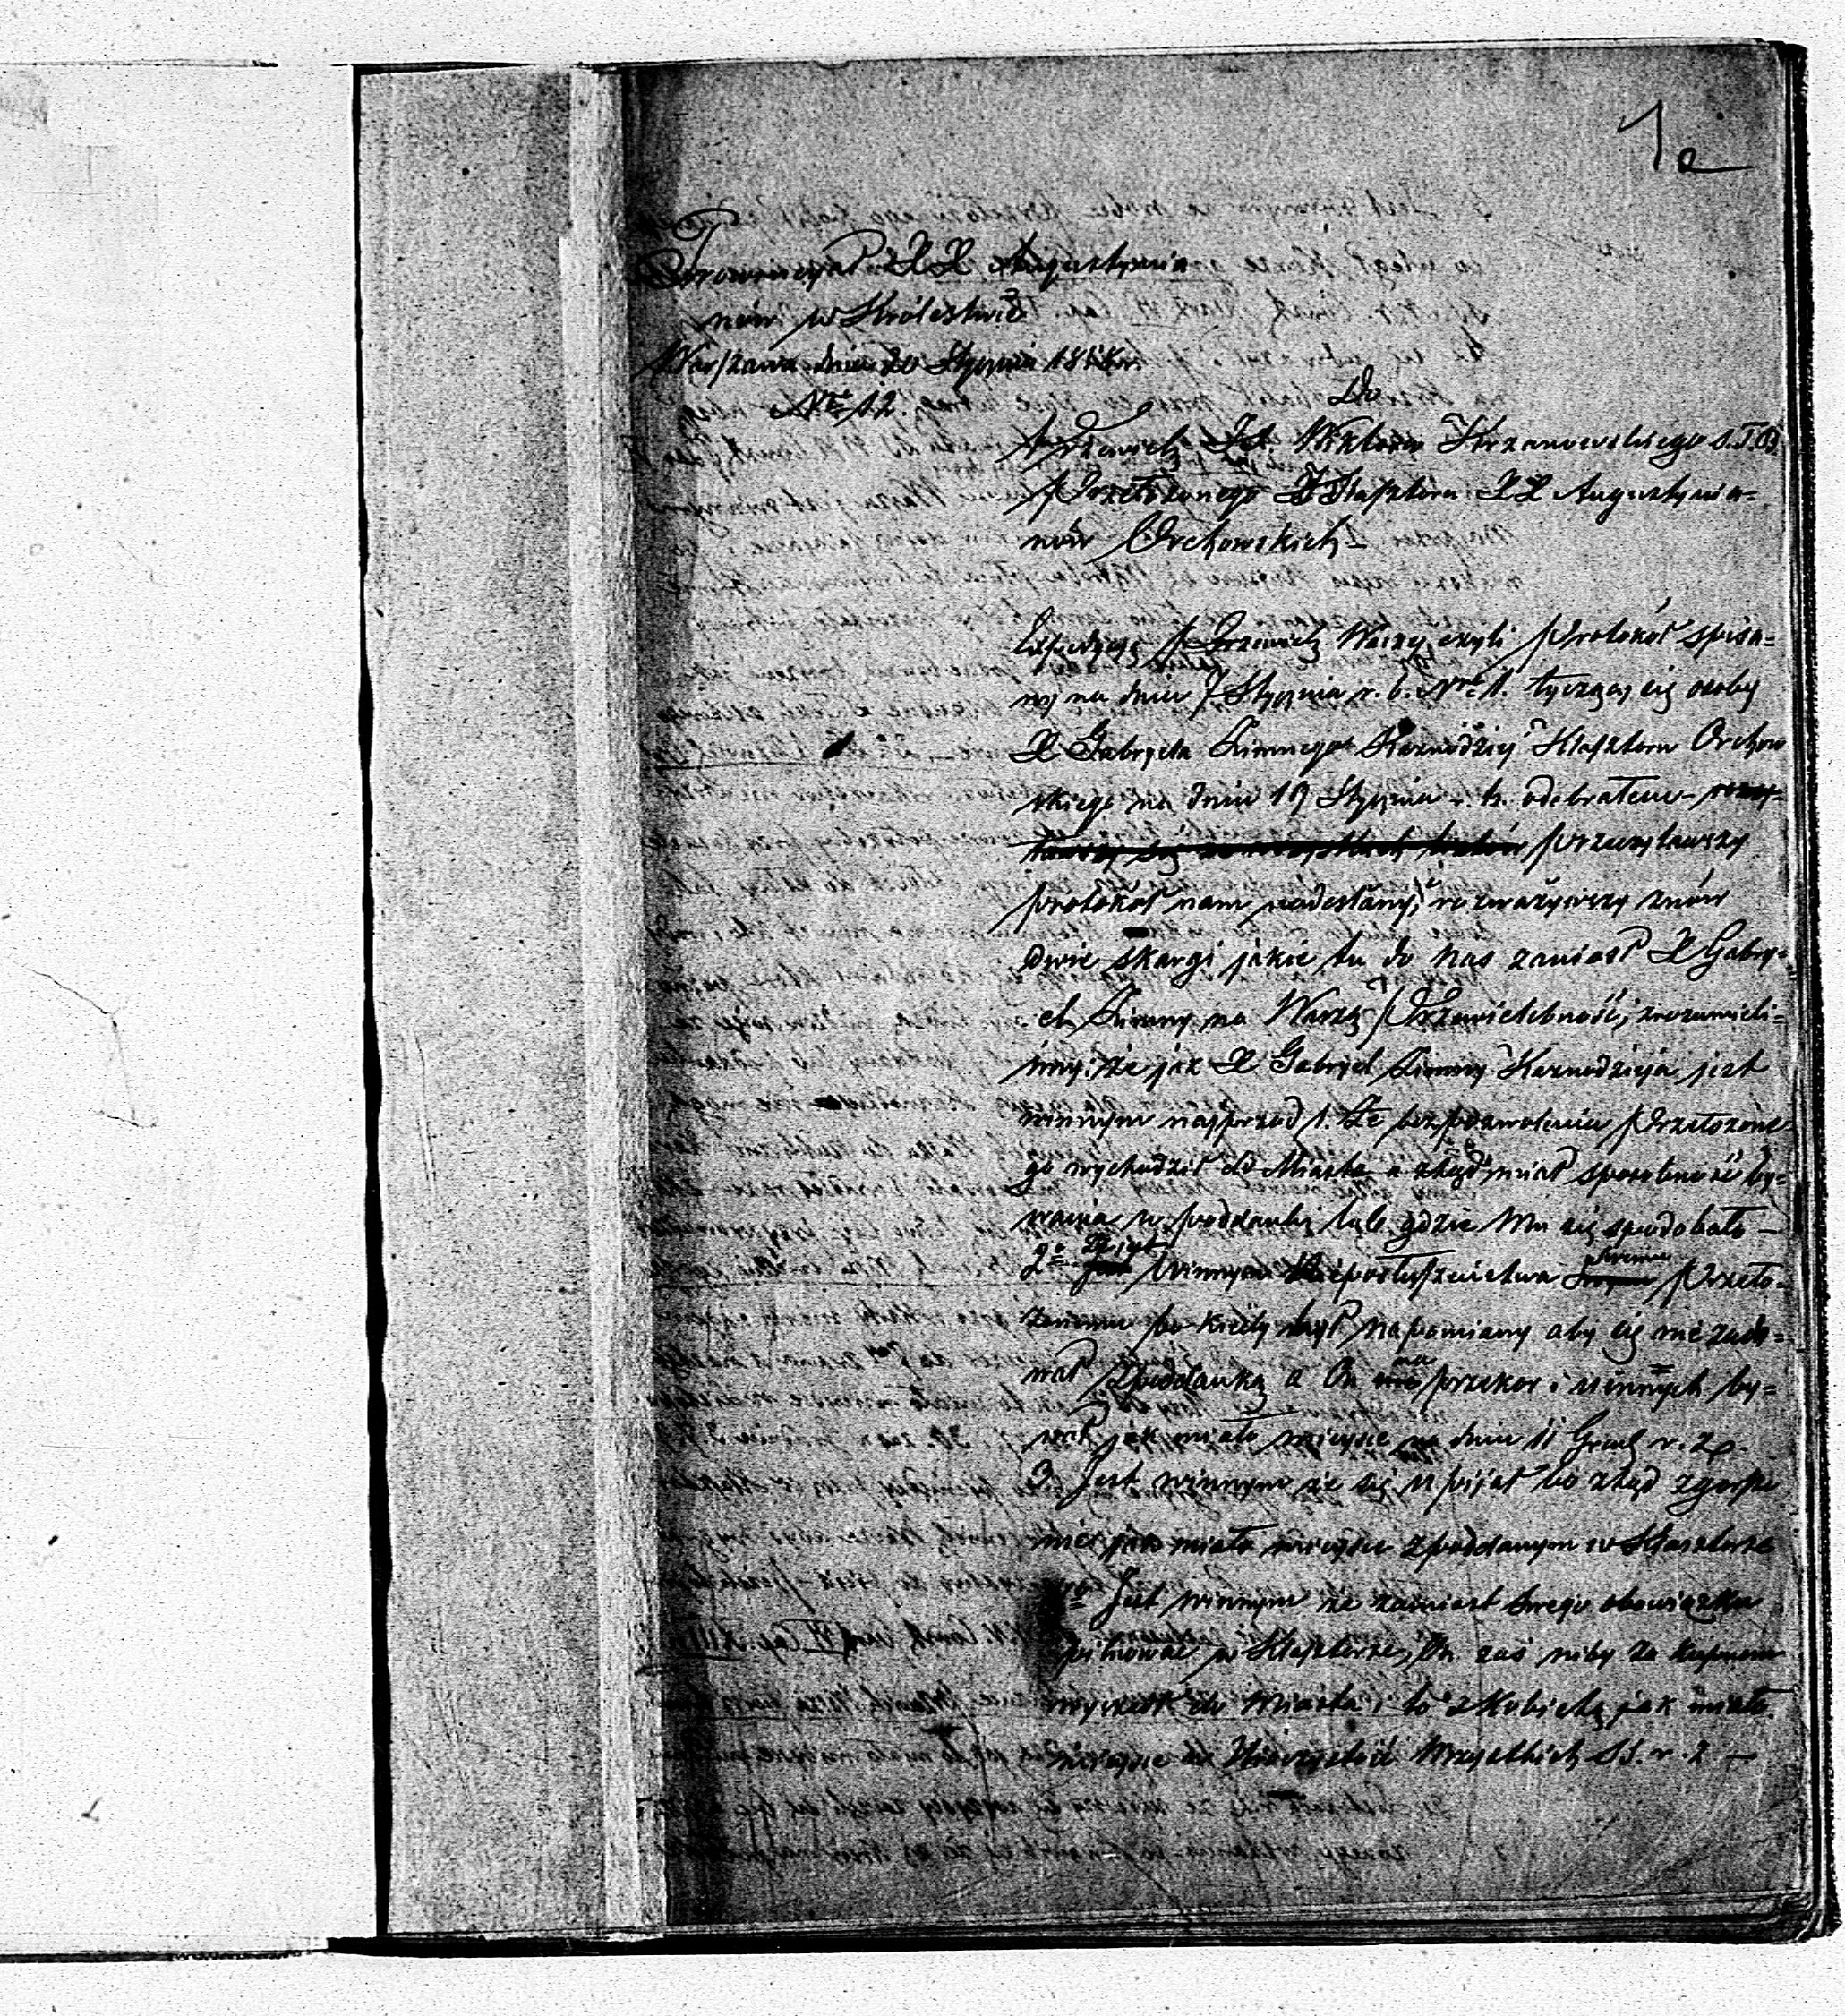 1a
Prowincyał XX Augustynia
nów w Królestwie
Warszawa dnia 20 Stycznia
Nro 12.
Do
Przewielb. JX. Wiktora Krzanowskiego S.T.B.
Przełożonego Klasztoru XX Augustynia=
nów Orchowskich
Przewieleb Waszej czyli Protokół spisa=
ny na dniu 7 Stycznia r. b. Nro 1. tyczący się osoby
X Gabryela Zimnego Kaznodziej Klasztoru Orchow
skiego na dniu 19 Stycznia r. b. odebrałem
przeczytawszy
protokół nam nadesłany, rozważywszy znów
dwie skargi jakie tu do nas zaniosł X Gabry=
el Zimny na Waszą Przewielebność, zrozumieli=
śmy, że jak X Gabryel Zimny Kaznodzieja jest
winnym najprzod 1. Że bez pozwolenia Przełożone
go wychodził do Miasta a ztąd miał sposobność by=
wania u poddanki lub gdzie Mu się spodobało —
2o Że jest winnym Nieposłuszeństwa Swemu Przeło=
żonemu bo kiedy był napomniany aby się nie zada=
wał z poddanką a On na przekor i u innych by=
wał jak miało miejsce na dniu 11 Grud r. z.
3. Jest winnym że się upijał bo ztąd zgorsze
nie jako miało miejsce z poddanym w Klasztorze
4o Jest winnym że zamiast swego obowiązku
pilnować w Klasztorze, On zaś niby za kupnem
wyszedł do Miasta i to z Kobietą jak miało
miejsce w Uroczystość Wszystkich SS. r. z —